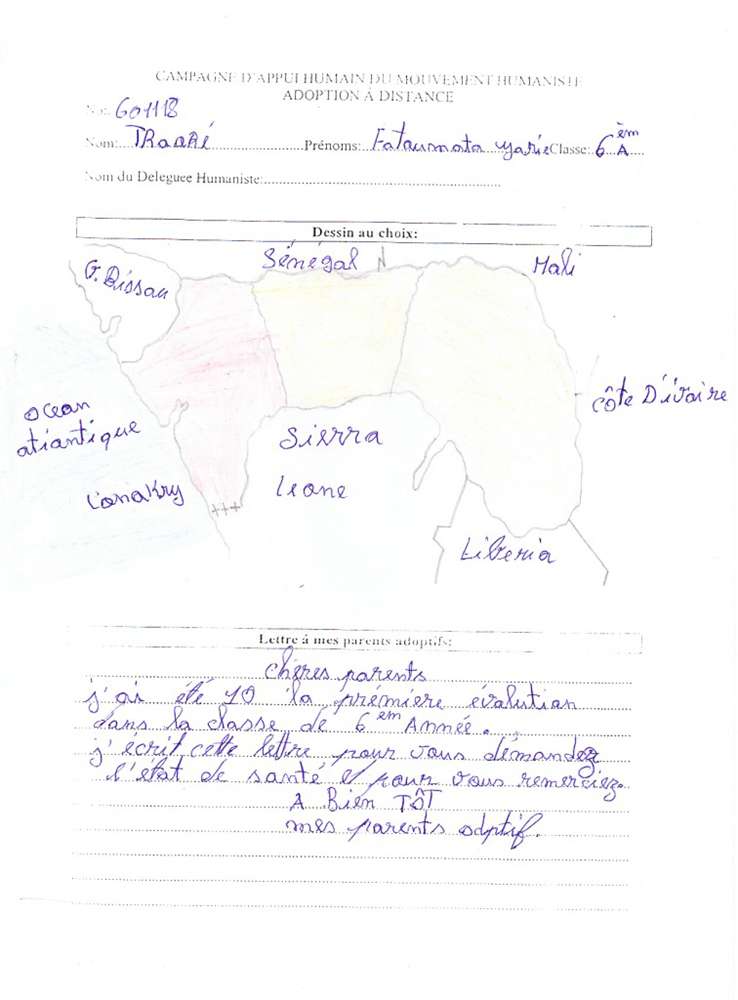 CAMPAGNE D'APPUI HUMAIN DU MOUVEMENT HUMANISTE
ADOPTION À DISTANCE
No: 601118
Nom: TRaoRé Prénoms: Fatoumata Classe: 6 èm A
Nom du Deleguee Humaniste:
Dessin au choix:
G. Bissau
Sénégal
N
Mali
côte D'ivoire
ocean
atiantique
Conakry
Sierra
leone
Liberia
Lettre à mes parents adoptifs:
chères parents
j'ai été 10 la prémière évalution
dans la classe de 6 em Année.
j'écrit cette lettre pour vous démandez
l'état de santé et pour vous remerciez.
A Bien TÔT
mes parents adptif.